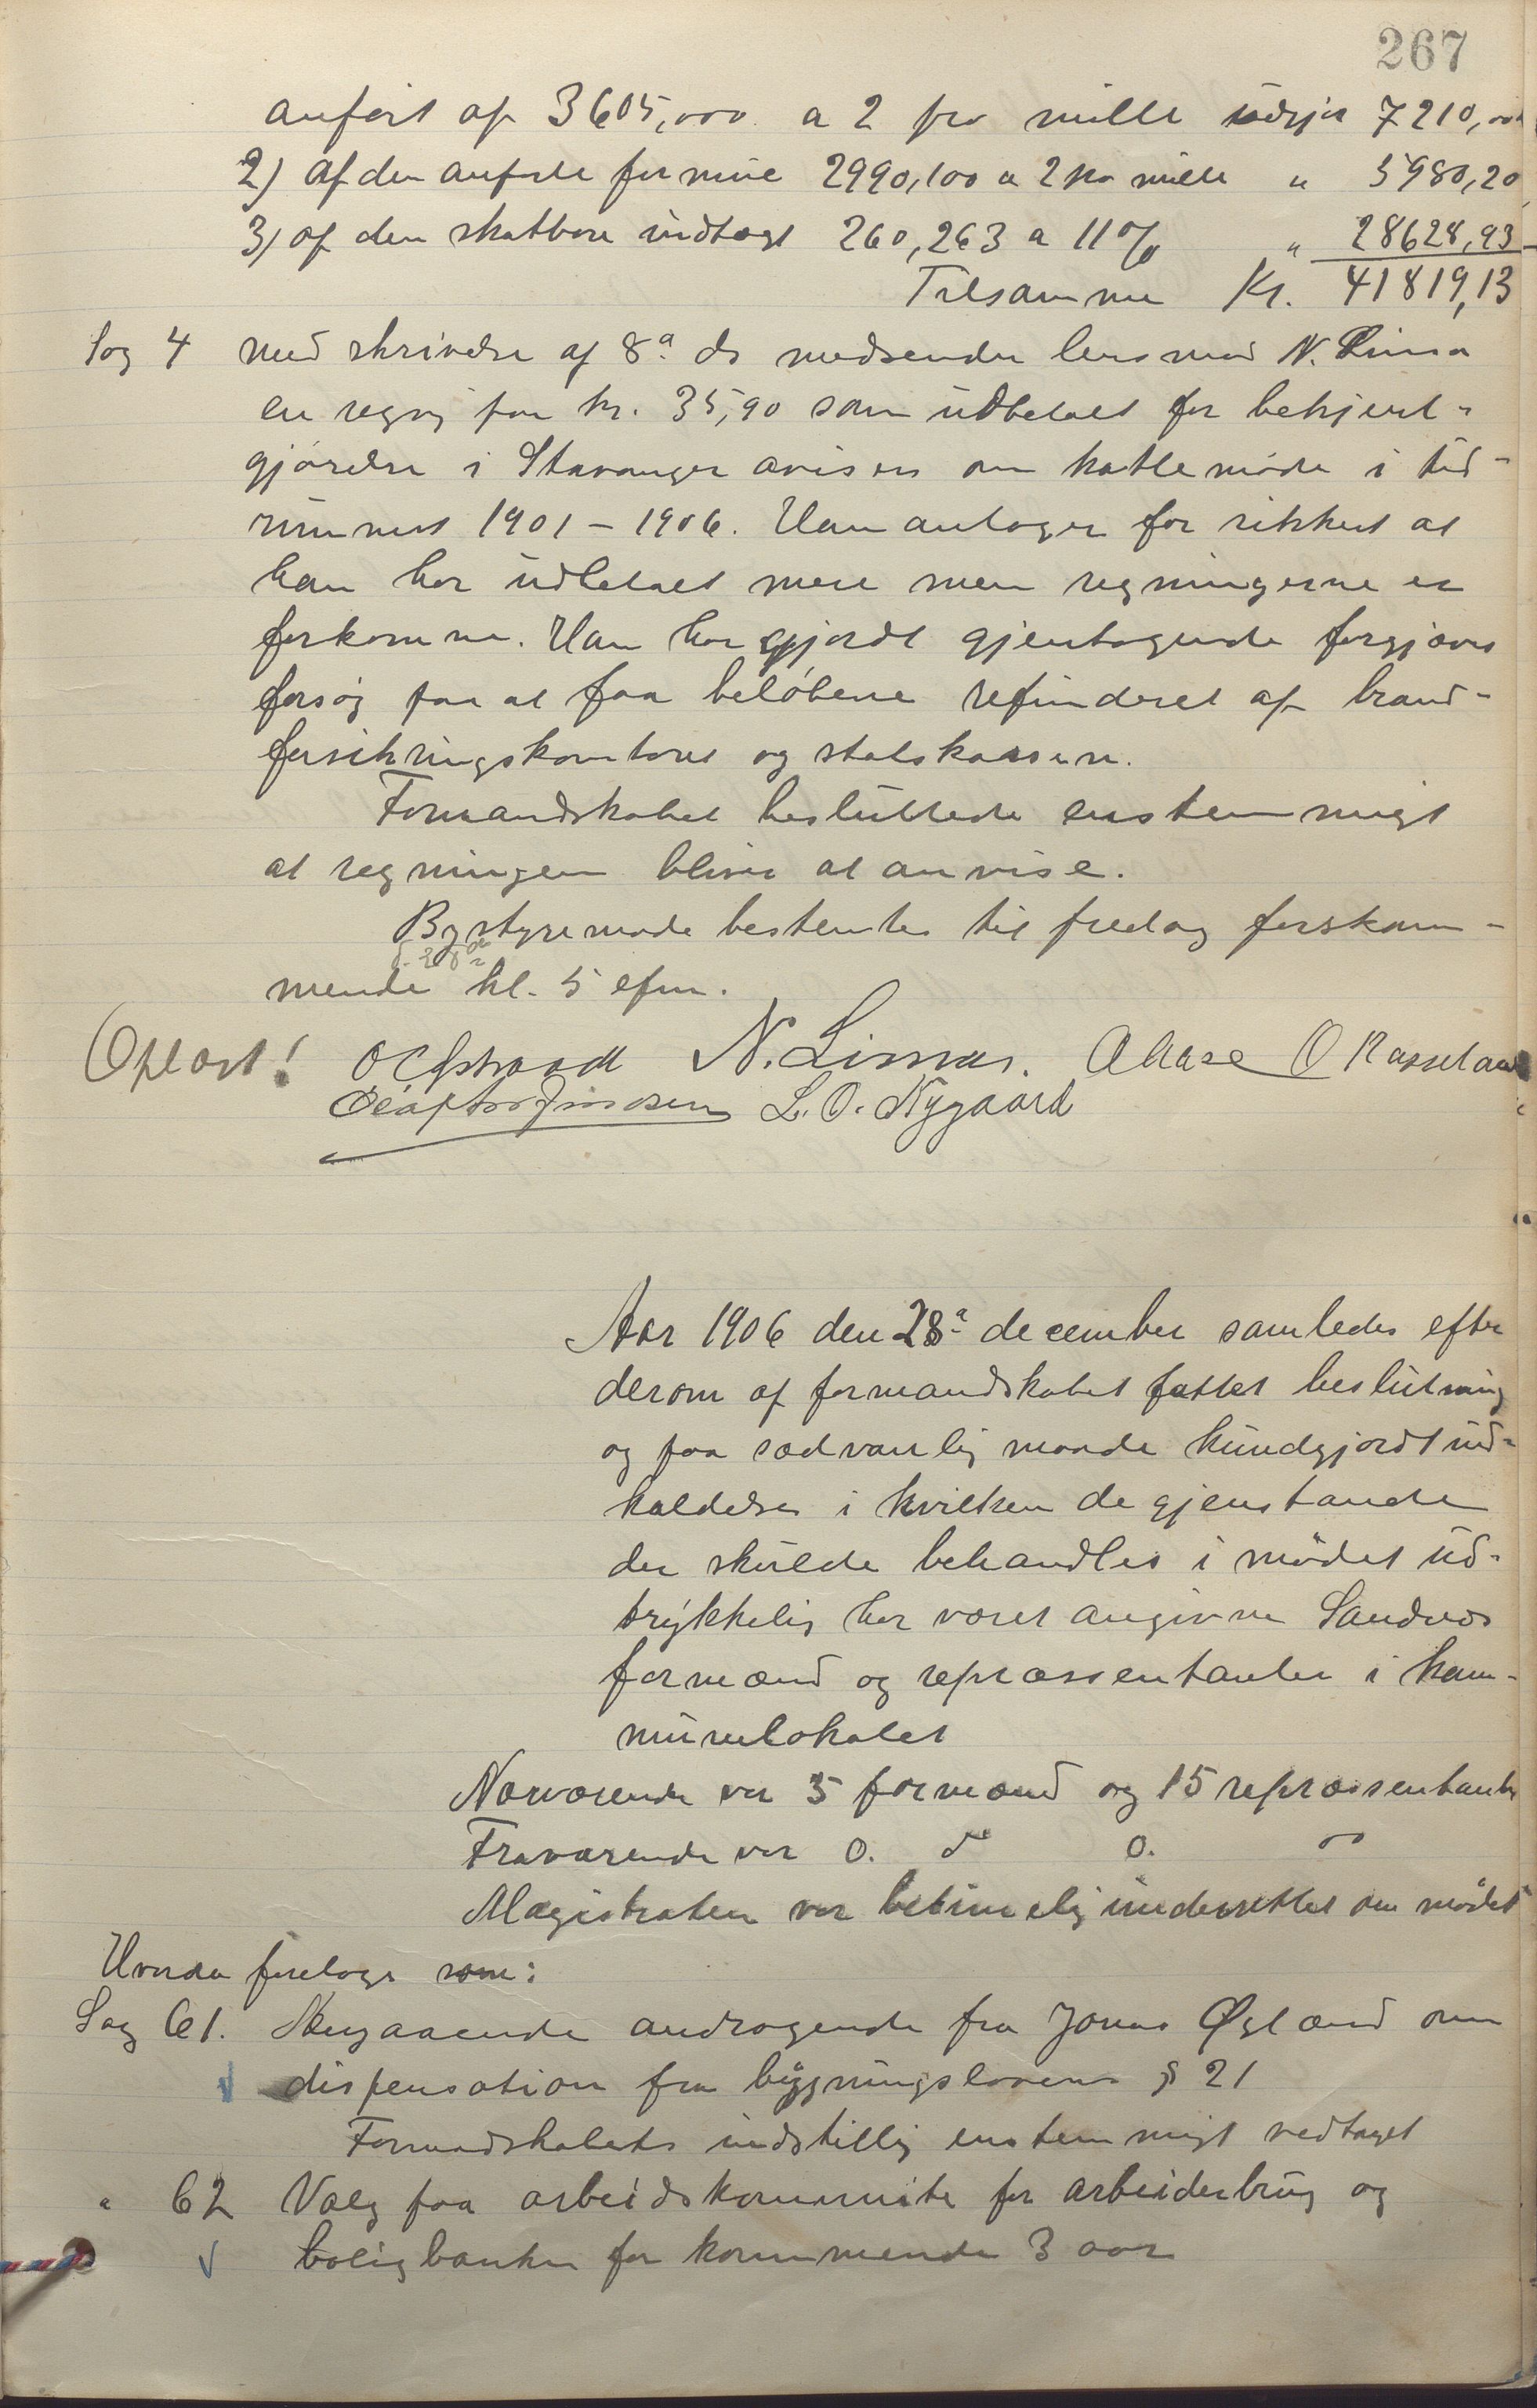 267
anført af 3605,000 a 2 pro mille udgjør 7210,00
2) Af den anførte formue 2990,100 a 2 pro mille " 5980,20
3) af den skatbare indtægt 260,263 a 11% " 28628,93
Tilsammen Kr. 41819,13
Sag 4 med skrivelse af 8de ds medsender lensmand N. Lima
en regng paa kr. 35,90 som udbetalt for bekjent-
gjørelse i Stavanger aviser om takstmøde i tid-
rummet 1901 – 1906. Han antager for sikkert at
han har udbetalt mere men regningerne er
forkomne. Han har gjordt gjentagende forgjæves
forsøg paa at faa beløbene refunderet af brand-
forsikringskontoret og statskassen.
Formandskabet besluttede enstemmigt
at regningen bliver at anvise.
Bystyremøde bestemtes til fredag førstkom-
d. 28de
mende kl. 5 efm.
Oplæst! N. Limas. A Aase O Rosseland
L. O. Nygaard
Aar 1906 den 28de december samledes efter
derom af formandskabet fattet beslutning
og paa sædvanlig maade kundgjordt ind-
kaldelse i hvilken de gjenstande
der skulde behandles i mødet ud-
trykkelig har været angivne Sandnes
formænd og repræssentanter i kom-
munelokalet
Nærværende var 5 formænd og 15 repræssentanter
Fraværende var 0. do 0. do
Magistraten var betimelig underrettet om mødet
Hvorda foretoges som:
Sag 61. Angaaende andragende fra Jonas Øglænd om
dispensation fra bygningslovens § 21
Formandskabets indstillig enstemmigt vedtaget
" 62 Valg paa arbeidskommite for arbeiderbrug og
boligbanken for kommende 3 aar